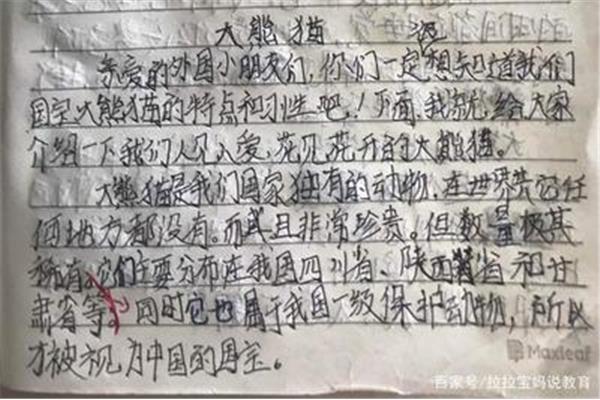 大熊猫
亲爱的外国小朋友们，你们一定想知道我们
国宝大熊猫的特点和习性吧！下面，我就给大家
介绍一下我们人见人爱，花见花开的大熊猫。
大熊猫是我们国家独有的动物，在世界其它任
何地方都没有。而且非常珍贵。但数量极其
稀有，它们主要分布在我国四川省、陕西省和甘
肃省等。同时它也属于我国一级保护动物，所以
才被视为中国的国宝。
Maxleaf
百家号/拉拉宝妈说教育